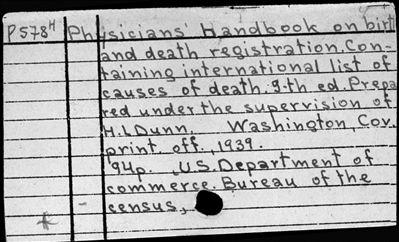 P578H Physicians' Handbook on birt
and death registration. Con-
taining international list of
causes of death. 9-th ed. Prepa
red under the supervision of
H.L Dunn. Washington, Cov.
print off., 1939.
94p. , U.S. Department of
commerce. Bureau of the
census,